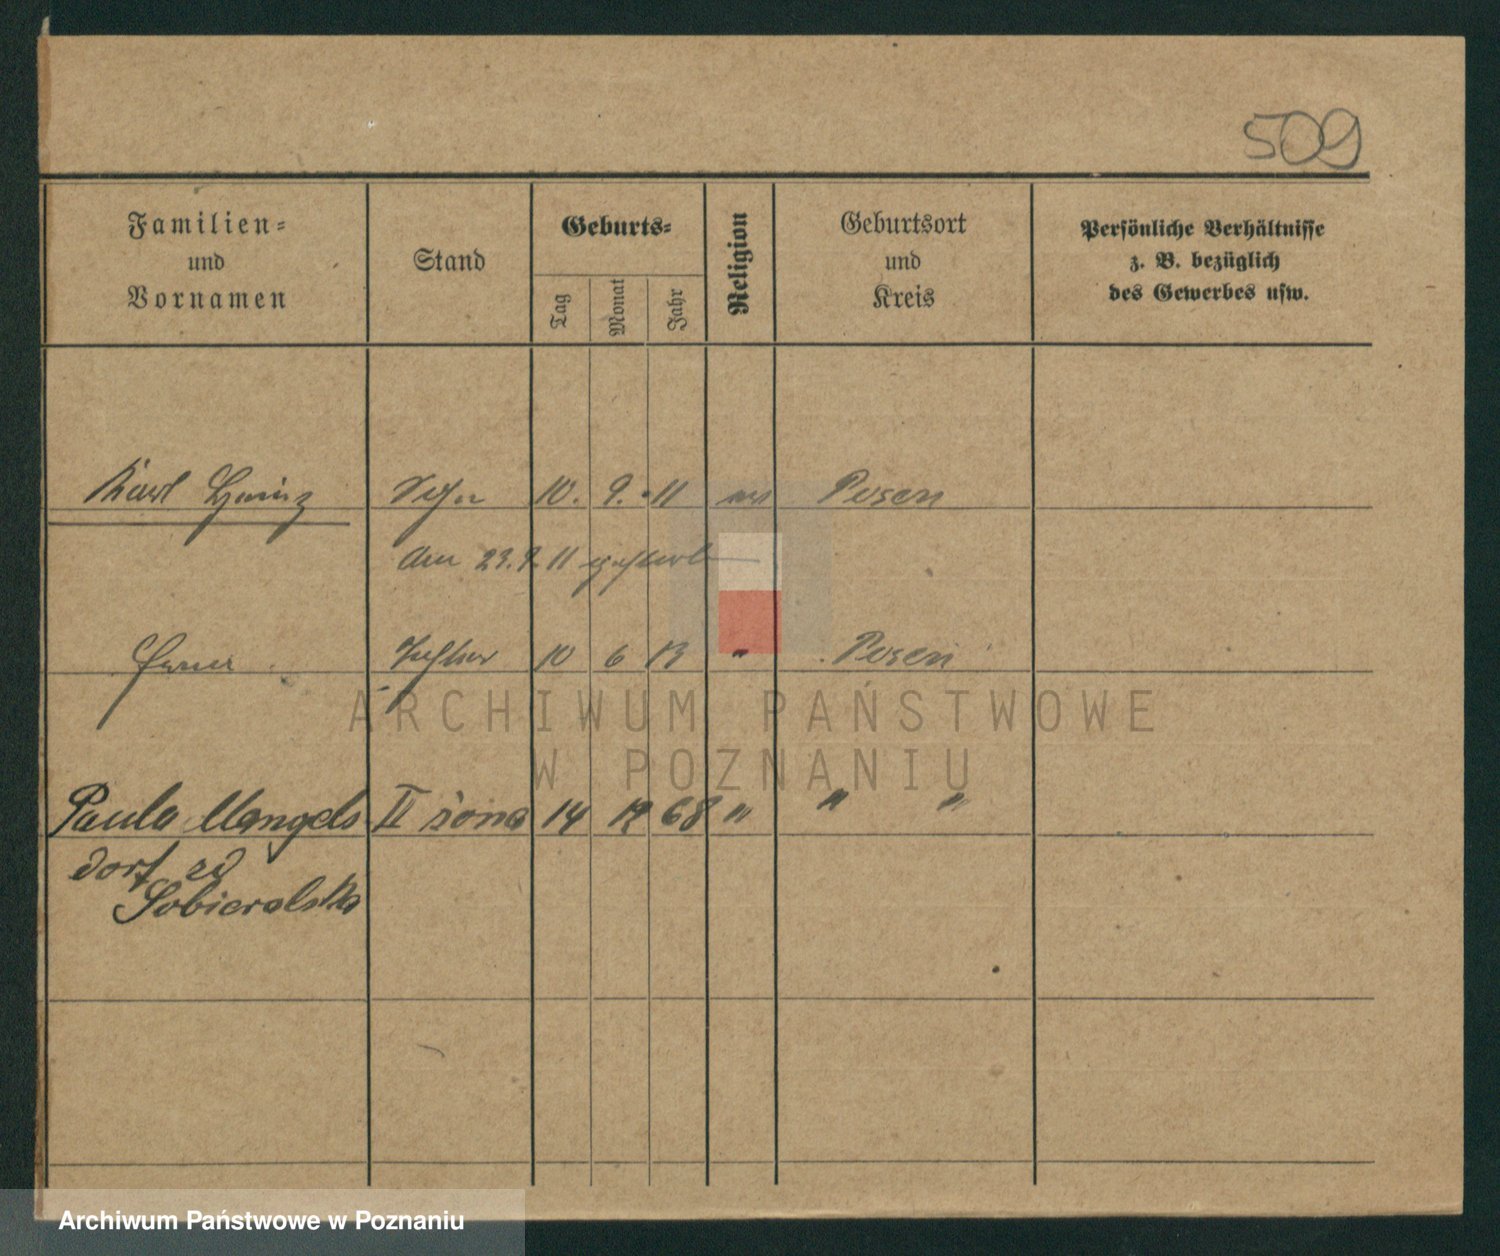 509
Familien=
und
Vornamen
Stand
Geburts=
Tag
Monat
Jahr
Religion
Geburtsort
und
Kreis
Persönliche Verhältnisse
z. B. bezüglich
des Gewerbes usw.
Karl Heinz Sohn 10. 9. 11 Posen
Am 23.9.11
Tochter 10 6 13 " Posen
ARCHIWUM PAŃSTWOWE
W POZNANIU
Paula Mangels II żona 14 12 68 " " "
dorf zd
Sobieralska
Archiwum Państwowe w Poznaniu